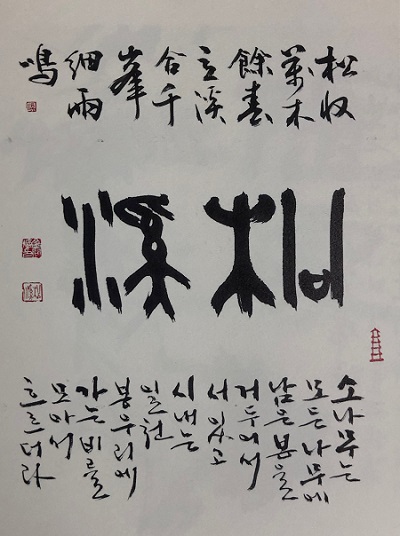 松收
萬木
餘春
立溪
合千
峯
細雨
鳴
松溪
소나무는
모든 나무에
남은 봄을
거두어서
서 있고
시내는
일천
봉우리에
가는 비를
모아서
흐르더라